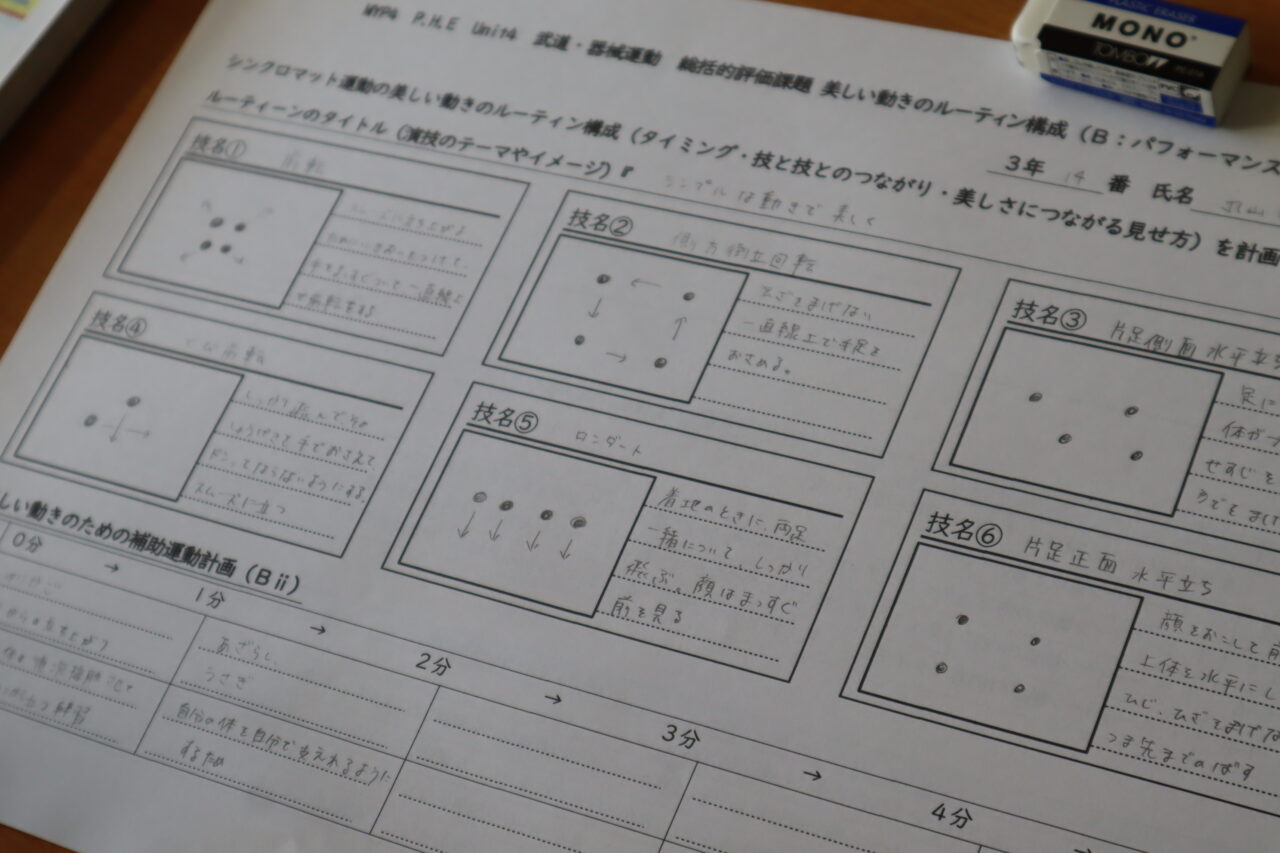 MYP4 P.H.E Unit4 武道・器械運動 総括的評価課題 美しい動きのルーティン構成（B：パフォーマンス
3年 14 番 氏名
シンクロマット運動の美しい動きのルーティン構成（タイミング・技と技とのつながり・美しさにつながる見せ方）を計画
ルーティーンのタイトル（演技のテーマやイメージ）『 シンプルな動きで美しく
技名① 前転
一直線上
で前転をする
技名② 側方倒立回転
ひざをまげない
一直線上で手足を
おさめる。
技名③ 片足側面水平立ち
足に
体が
せすじを
技名④ とび前転
しっかり跳んで、その
しょうげきを手でおさえて、
ドンってならないようにする。
スムーズに立つ
技名⑤ ロンダート
着地のときに、両足
一緒について、しっかり
飛ぶ。顔はまっすぐ
前を見る
技名⑥ 片足正面水平立ち
顔をおこして前
上体を水平にし
ひじ、ひざをまげな
つま先までのばす
しい動きのための補助運動計画（Bⅱ）
0分 → 1分 → 2分 → 3分 → 4分 →
ゆりかご
からの立ち上がり
あざらし、
うさぎ
自分の体を自分で支えれるように
するため
PLASTIC ERASER
MONO
TOMBOW